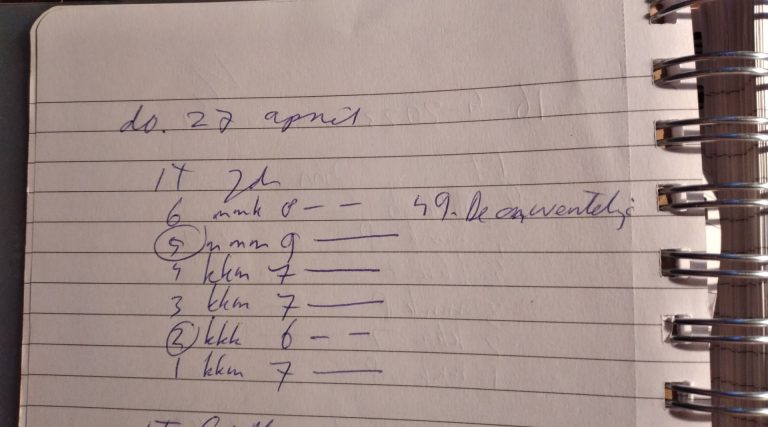 do. 27 april
IT
6 mmk 8 — — 49. De omwenteling
5 mmm 9 ———
4 kkm 7 ———
3 kkm 7 ———
2 kkk 6 — —
1 kkm 7 ———